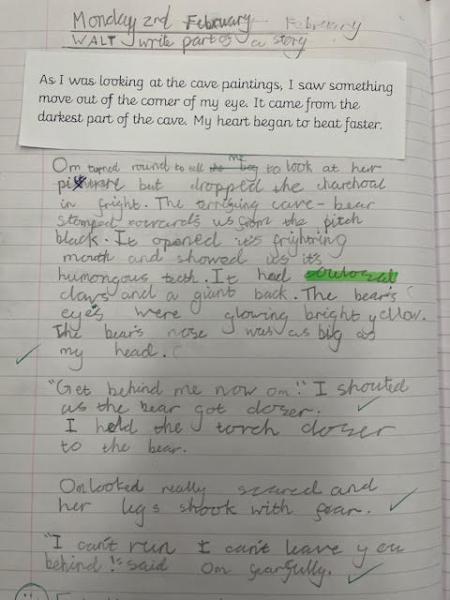 Monday 2nd February February
WALT write part of a story
As I was looking at the cave paintings, I saw something
move out of the corner of my eye. It came from the
darkest part of the cave. My heart began to beat faster.
Om turned round to tell me to look at her
but dropped the charchoal
in fright. The terrifying cave-bear
stomped towards us from the pitch
black. It opened it's frightning
mouth and showed us it's
humongous teeth. It had
claws and a giant back. The bear's
eye's were glowing bright yellow.
The bear's nose was as big as
my head.
"Get behind me now om!" I shouted
as the bear got closer.
I held the torch closer
to the bear.
Om looked really scared and
her legs shook with fear.
"I can't run I can't leave you
behind!" said Om fearfully.